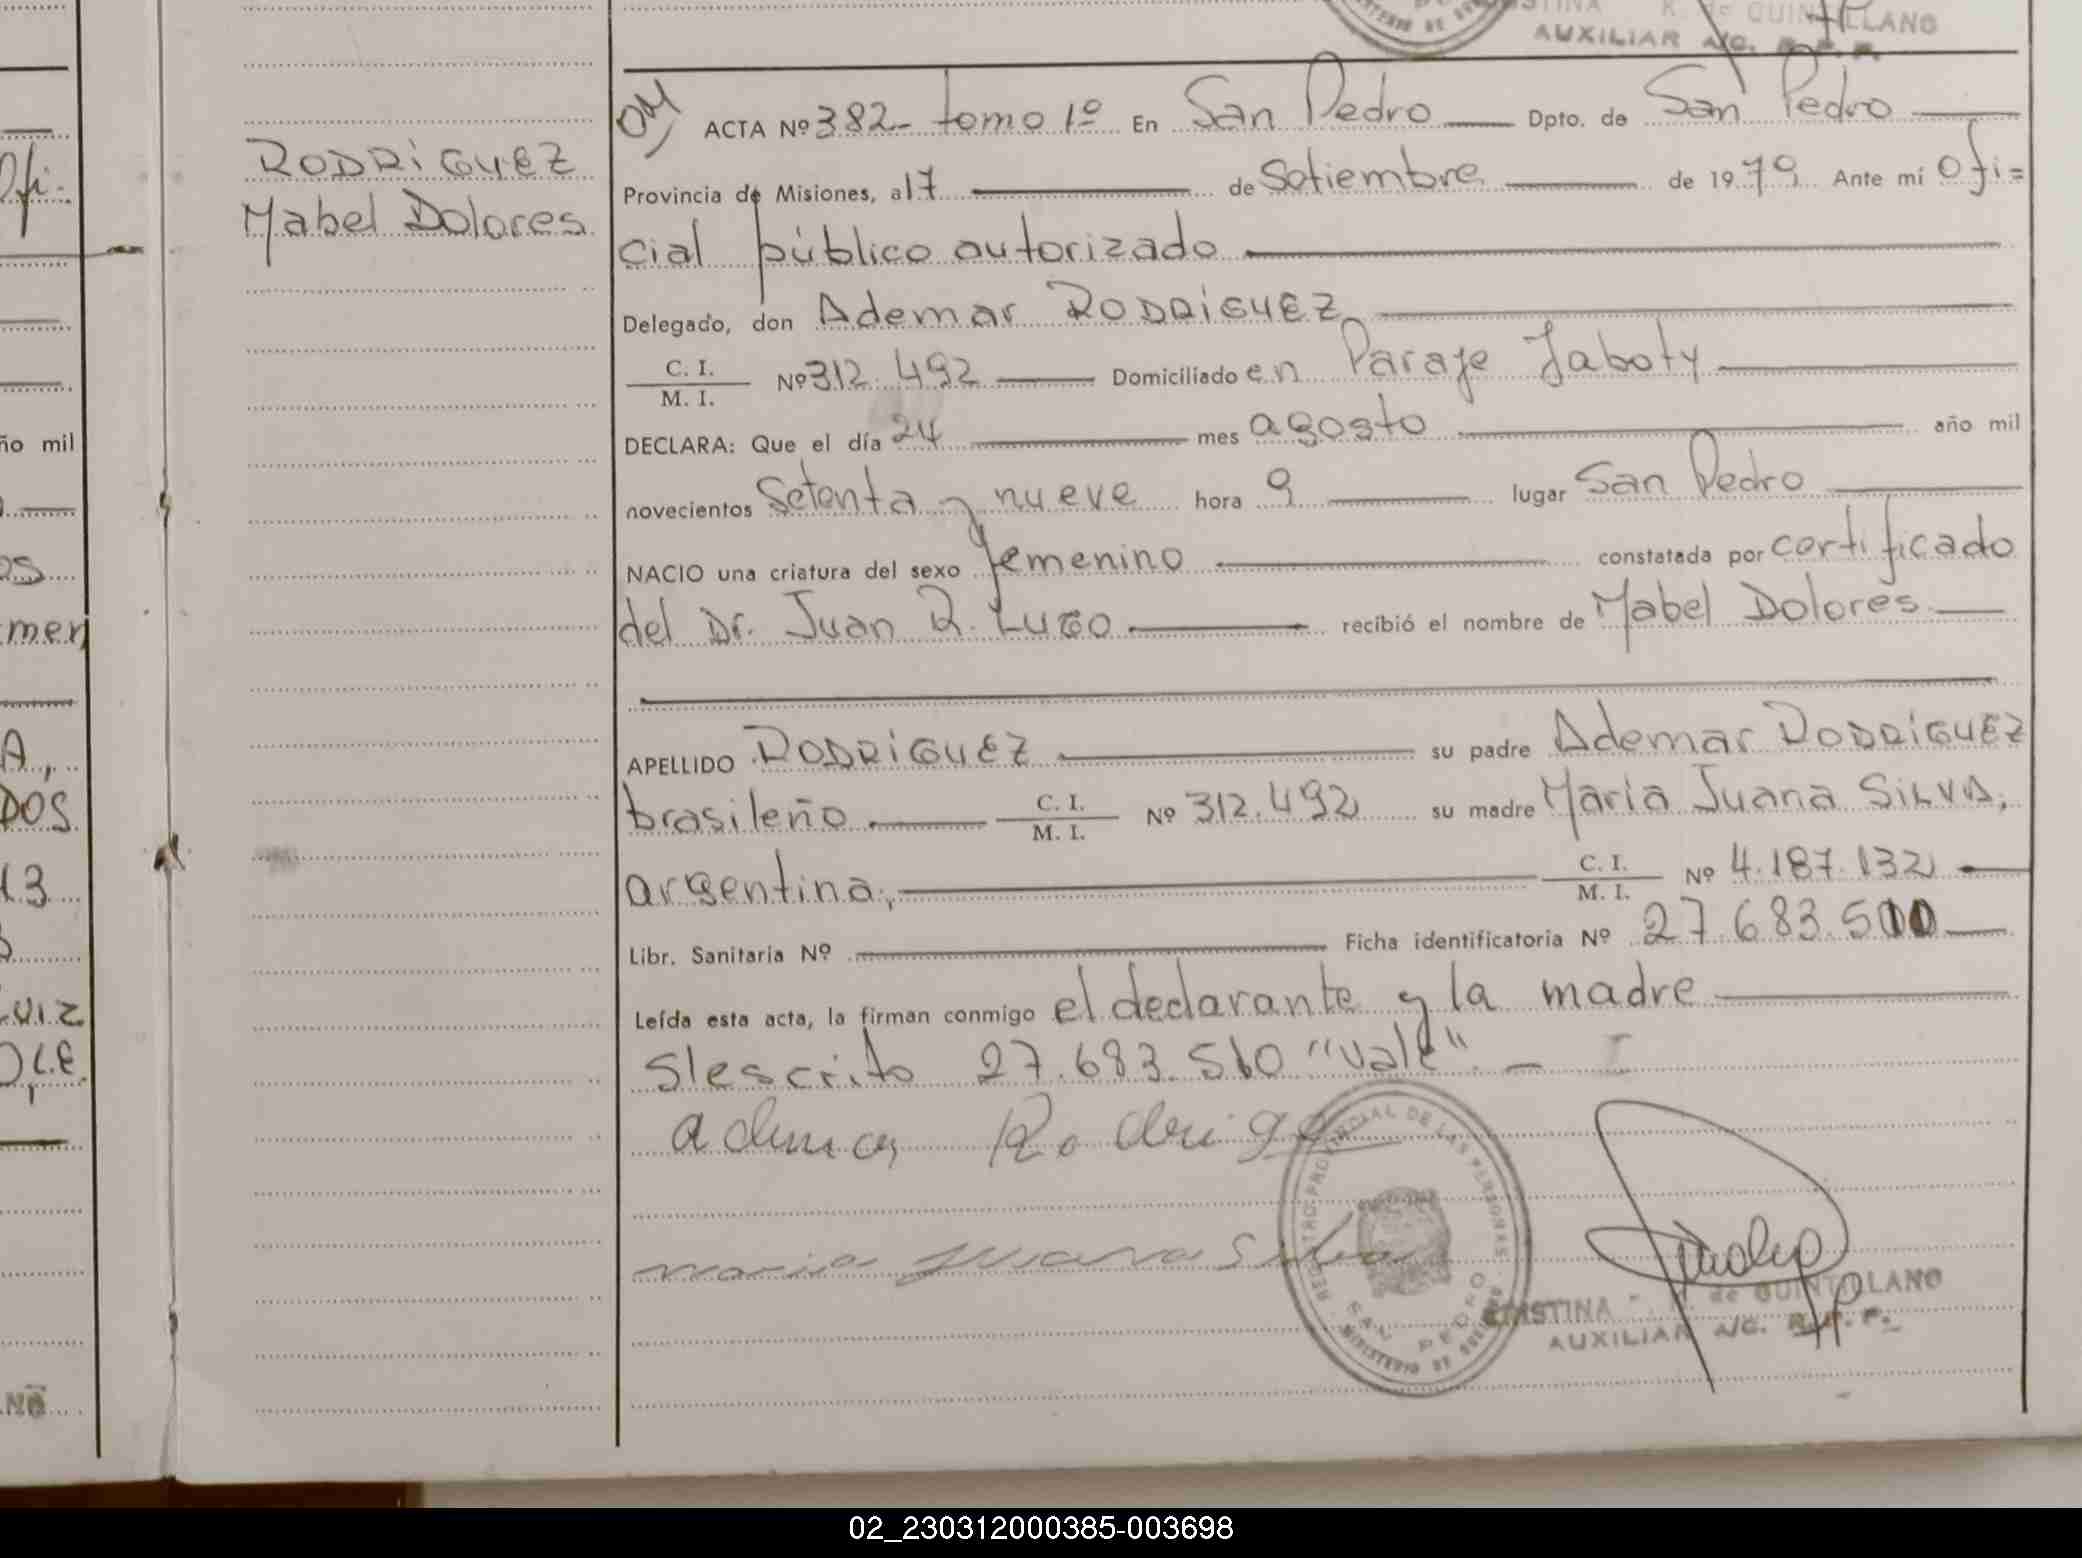 AUXILIAR A/C. R.P.P.
RODRIGUEZ
Mabel Dolores
ACTA Nº 382- tomo 1º En San Pedro Dpto. de San Pedro
Provincia de Misiones, a 17 de Setiembre de 1979 Ante mí Ofi=
cial público autorizado
Delegado, don Ademar RODRIGUEZ
C. I.
M. I.
Nº 312.492 Domiciliado en Paraje Jaboty
DECLARA: Que el día 24 mes agosto año mil
novecientos Setenta y nueve hora 9 lugar San Pedro
NACIO una criatura del sexo femenino constatada por certificado
del Dr. Juan R. Lugo recibió el nombre de Mabel Dolores
APELLIDO RODRIGUEZ su padre Ademar RODRIGUEZ
brasileño C. I. M. I. Nº 312.492 su madre Maria Juana SILVA,
argentina, C. I. M. I. Nº 4.187.132
Libr. Sanitaria Nº Ficha identificatoria Nº 27.683.510
Leída esta acta, la firman conmigo el declarante y la madre
S/escrito 27.683.510 "Vale" -
REGISTRO PROVINCIAL DE LAS PERSONAS
SAN PEDRO
MINISTERIO DE GOBIERNO
maria Juana Silva
de QUINTILLANO
AUXILIAR A/C. R.P.P.
02_230312000385-003698